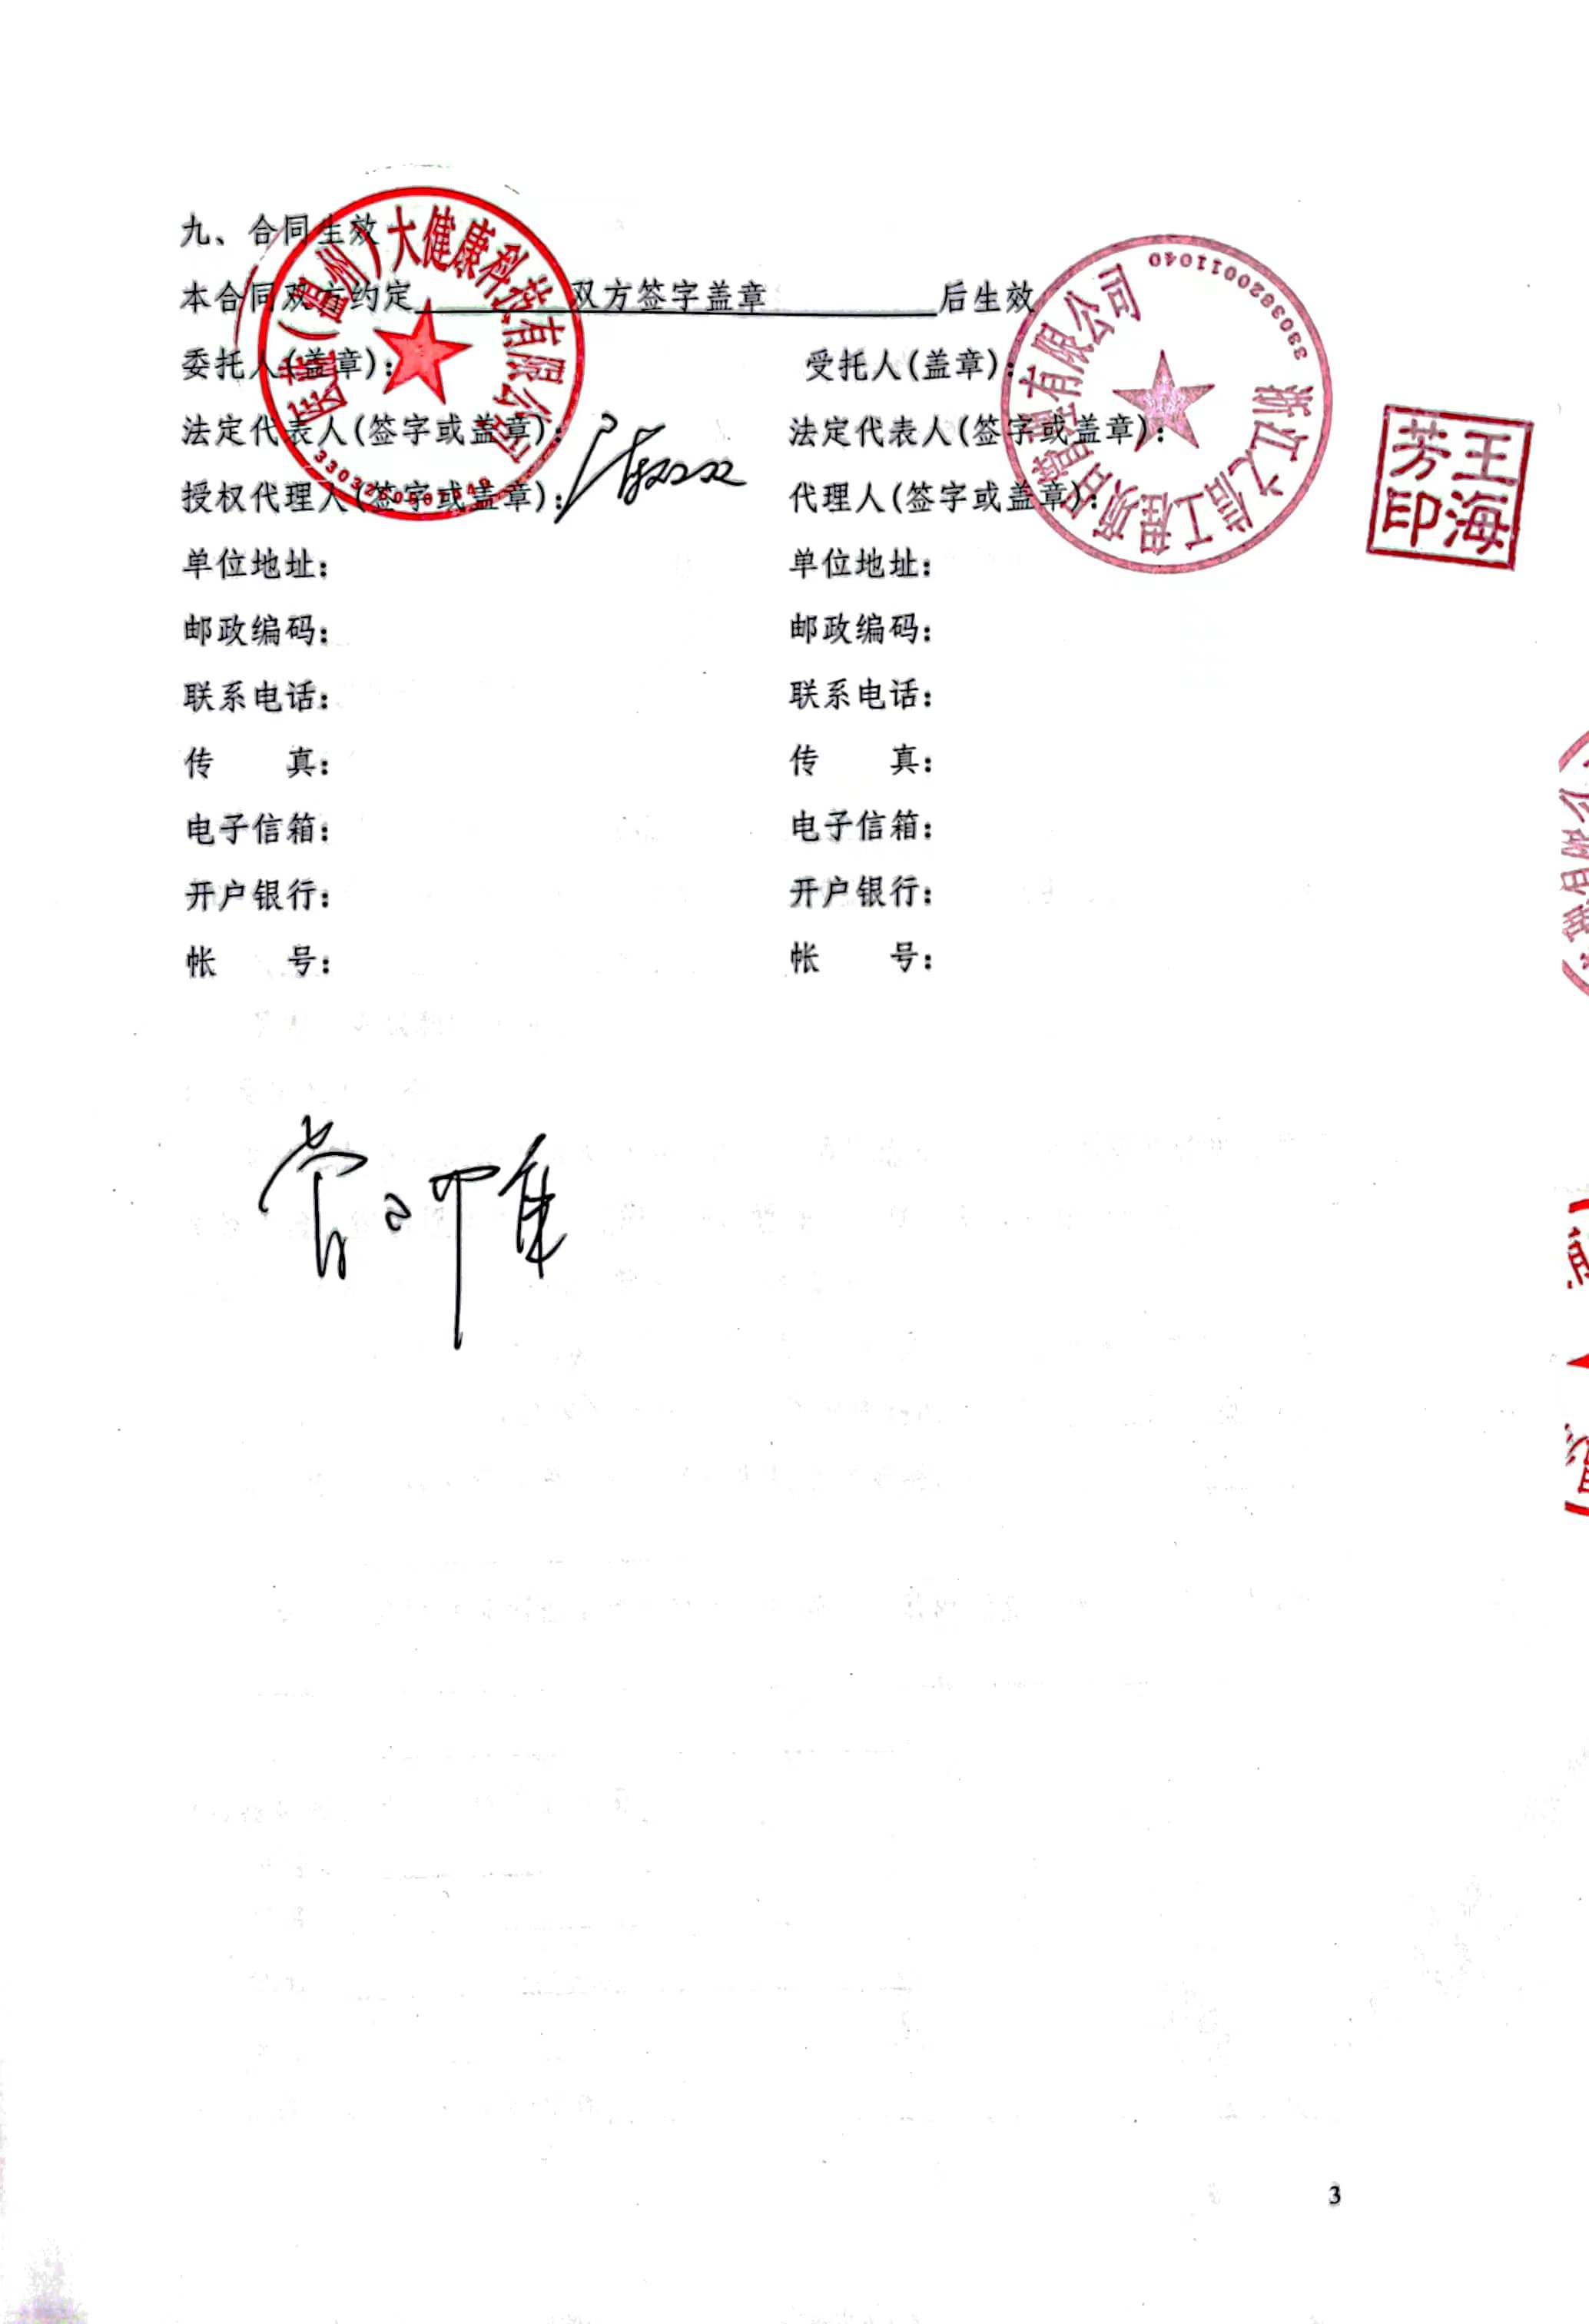 九、合同生效
本合同双方约定 双方签字盖章 后生效
委托人(盖章): 受托人(盖章):
法定代表人(签字或盖章): 法定代表人(签字或盖章):
授权代理人(签字或盖章): 代理人(签字或盖章):
单位地址: 单位地址:
邮政编码: 邮政编码:
联系电话: 联系电话:
传 真: 传 真:
电子信箱: 电子信箱:
开户银行: 开户银行:
帐 号: 帐 号:
(温州)大健康科技有限公司
工程项目管理有限公司
33038200011040
王海芳印
3